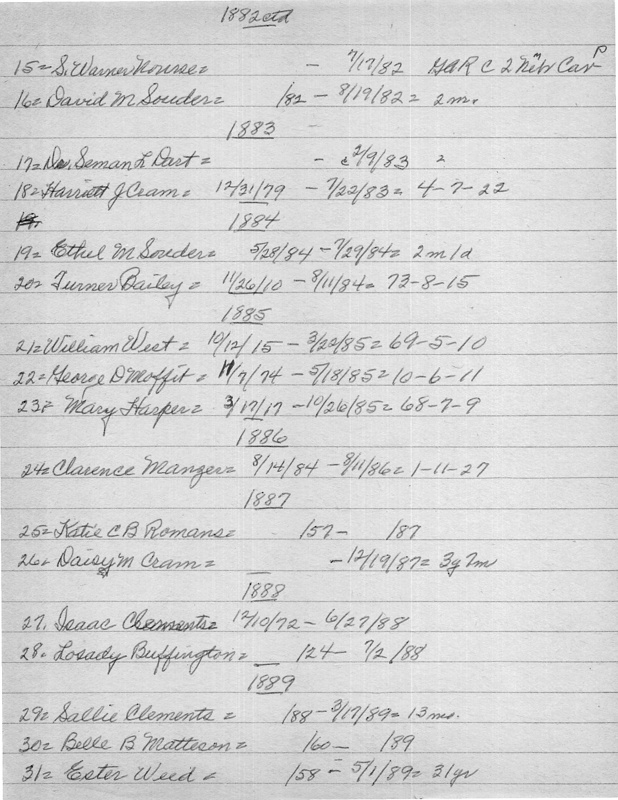 1882 ctd
15= S. Warner Nourse= - 7/17/82 GAR C 2 Nebr Cav P
16= David M Souder= /82 - 8/19/82 = 2m.
1883
17= De. Seman L Dart = - 2/9/83 =
18= Harriett J Cram = 12/31/79 - 7/22/83= 4-7-22
19.
1884
19= Ethel M Souder= 5/28/84 - 7/29/84= 2m1d
20= Turner Bailey = 11/26/10 - 8/11/84= 73-8-15
1885
21= William West = 10/12/15 - 3/22/85= 69-5-10
22= George D Moffit = 11/7/74 - 5/18/85= 10-6-11
23= Mary Harper= 3/17/17 - 10/26/85= 68-7-9
1886
24= Clarence Manger= 8/14/84 - 8/11/86= 1-11-27
1887
25= Katie C B Romans= /57- /87
26= Daisy M Cram = - 12/19/87= 3y 7m
1888
27. Isaac Clements= 12/10/72 - 6/27/88
28. Losady Buffington= /24 - 7/2/88
1889
29= Sallie Clements = /88 - 3/17/89= 13 mo.
30= Belle B Matteson= /60- /89
31= Ester Weed = /58 - 5/1/89= 31yr